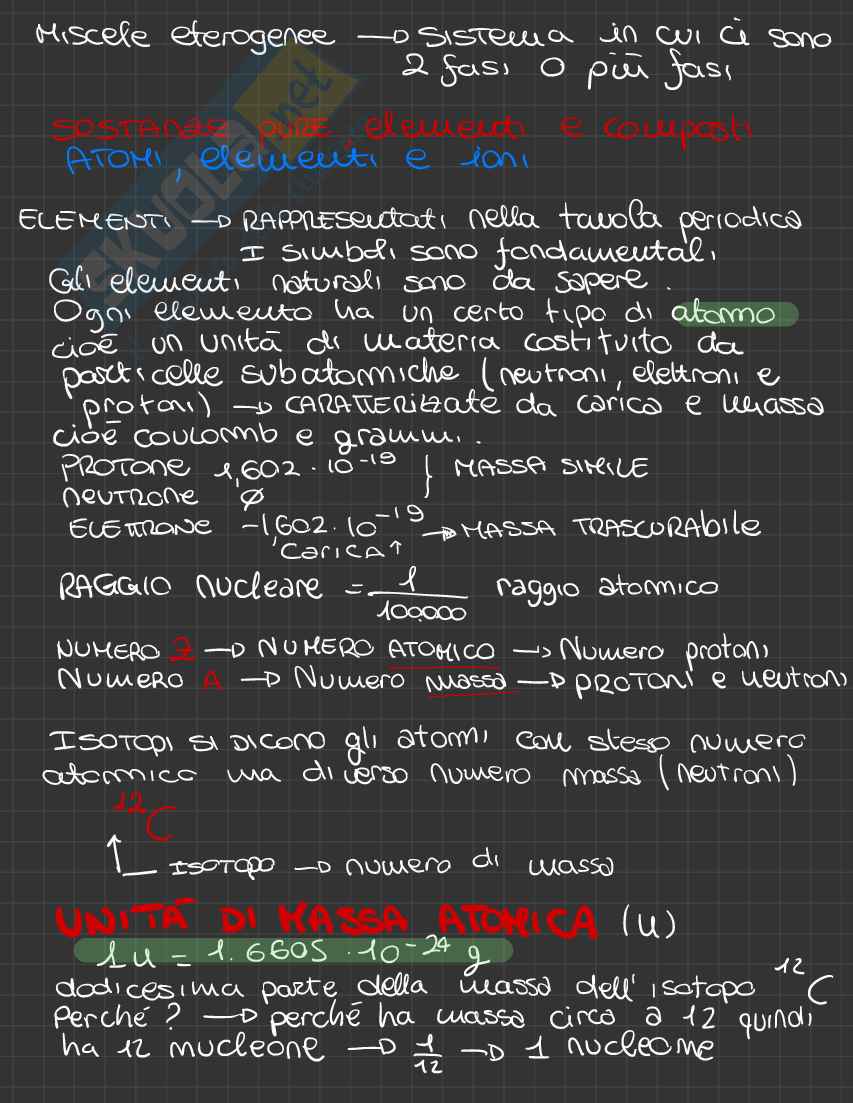 Miscele eterogenee → Sistema in cui ci sono
2 fasi o più fasi
SOSTANZE PURE, elementi e composti
ATOMI, elementi e ioni
ELEMENTI → RAPPRESENTATI nella tavola periodica
I simboli sono fondamentali
Gli elementi naturali sono da sapere.
Ogni elemento ha un certo tipo di atomo
cioè un unità di materia costituito da
particelle subatomiche (neutroni, elettroni e
protoni) → CARATTERIZZATE da carica e massa
cioè coulomb e grammi.
PROTONE 1,602 · 10⁻¹⁹ } MASSA SIMILE
NEUTRONE ∅
ELETTRONE -1,602 · 10⁻¹⁹ → MASSA TRASCURABILE
CARICA ↑
RAGGIO nucleare = 1/100.000 raggio atomico
NUMERO Z → NUMERO ATOMICO → Numero protoni
NUMERO A → Numero massa → PROTONI e neutroni
ISOTOPI SI DICONO gli atomi con stesso numero
atomico ma diverso numero massa (neutroni)
¹²C
ISOTOPO → numero di massa
UNITÀ DI MASSA ATOMICA (u)
1u = 1.6605 · 10⁻²⁴ g
dodicesima parte della massa dell'isotopo ¹²C
Perché? → perché ha massa circa a 12 quindi
ha 12 nucleone → 1/12 → 1 nucleone
SKUOLA.net